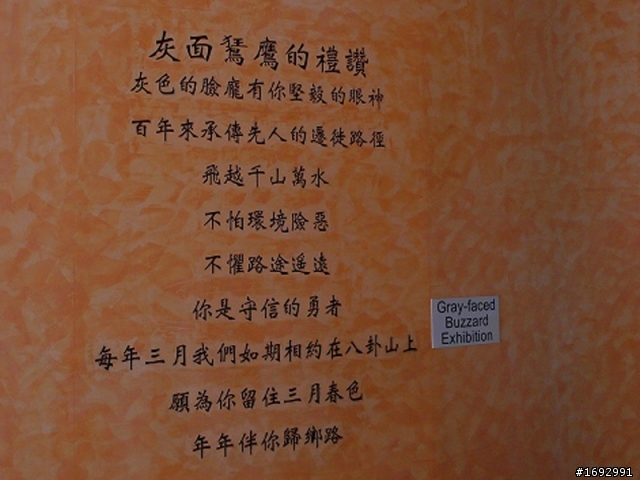 灰面鵟鷹的禮讚
灰色的臉龐有你堅毅的眼神
百年來承傳先人的遷徙路徑
飛越千山萬水
不怕環境險惡
不懼路途遙遠
你是守信的勇者
每年三月我們如期相約在八卦山上
願為你留住三月春色
年年伴你歸鄉路
Gray-faced
Buzzard
Exhibition
#1692991